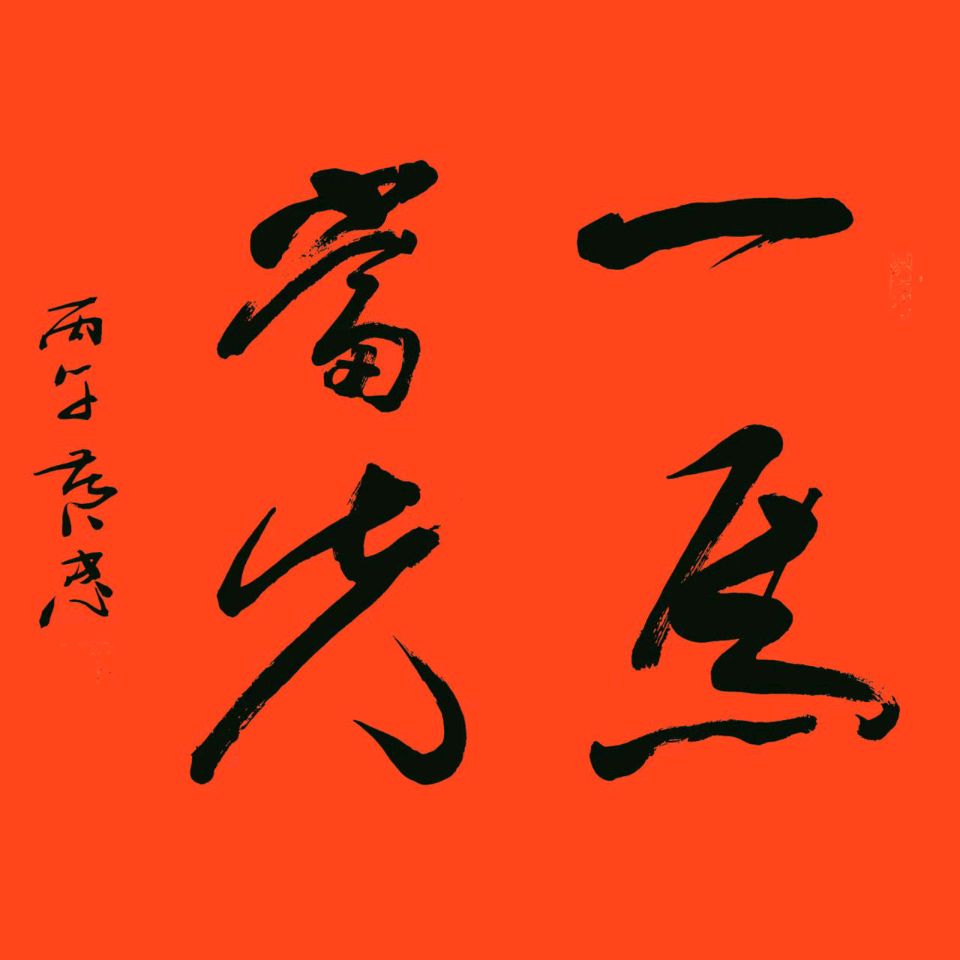 一马
当先
丙午